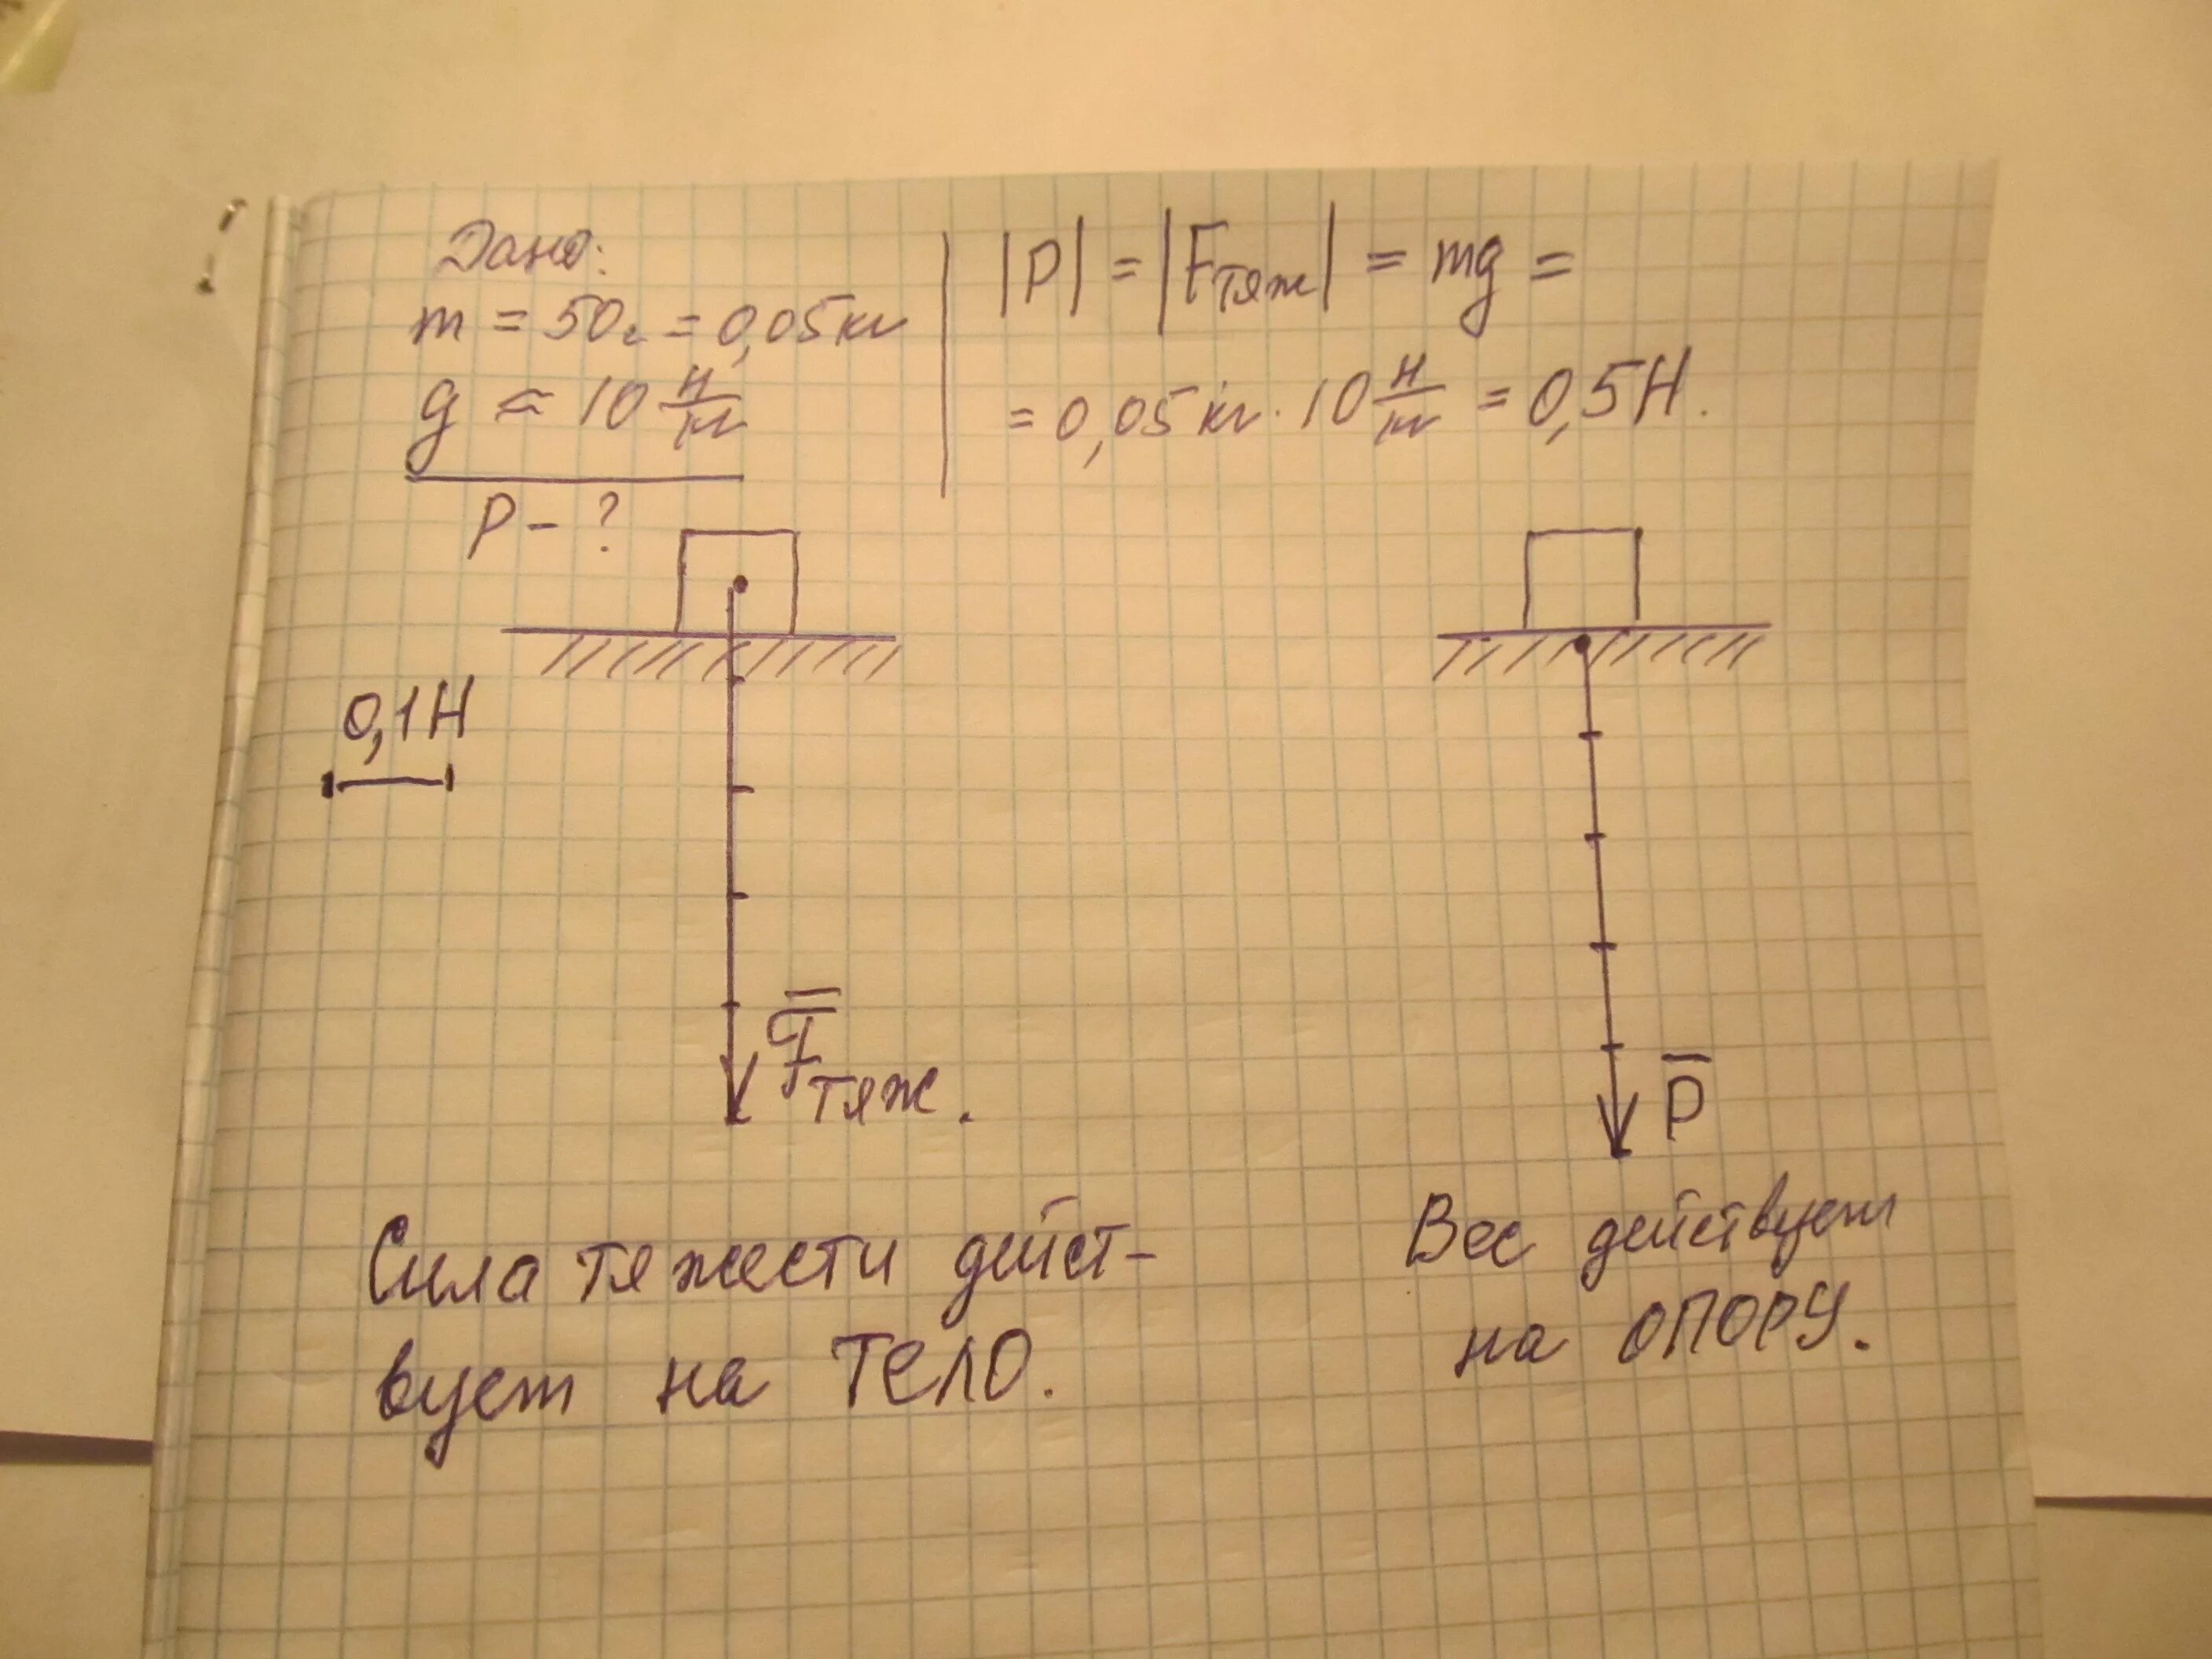 Дано:
m = 50г = 0,05кг
g ≈ 10 Н/кг
P - ?
|P| = |Fтяж| = mg =
= 0,05кг · 10 Н/кг = 0,5Н.
0,1Н
F̅тяж.
P̅
Сила тяжести дейст-
вует на ТЕЛО.
Вес действует
на ОПОРУ.